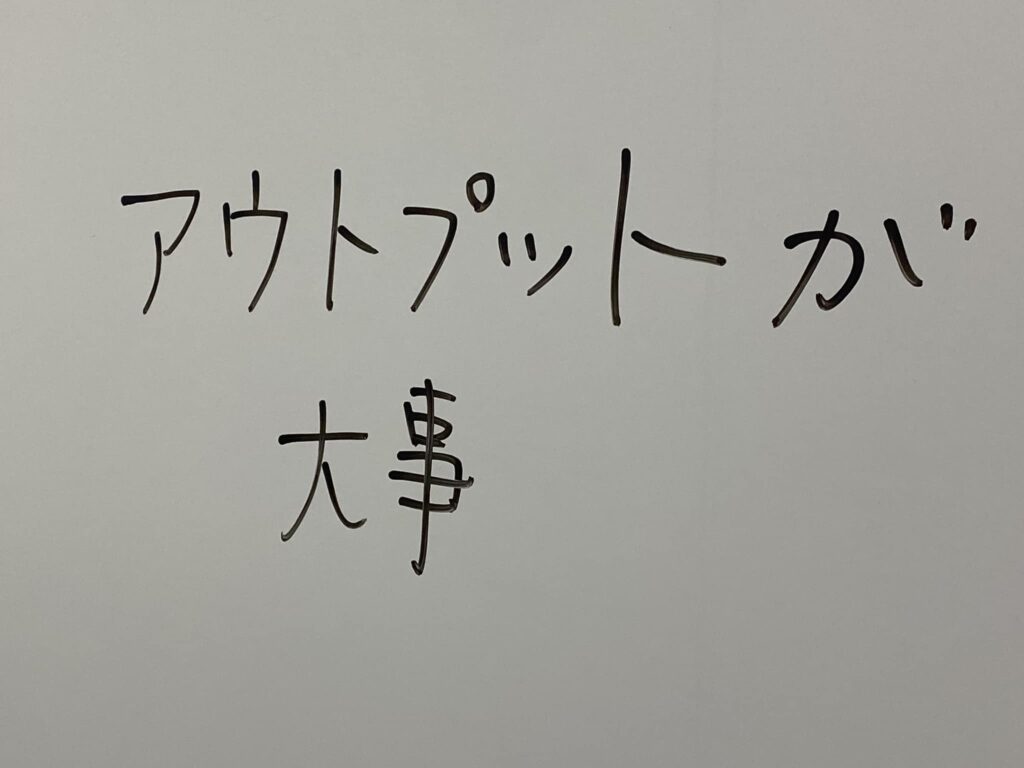 アウトプットが
大事